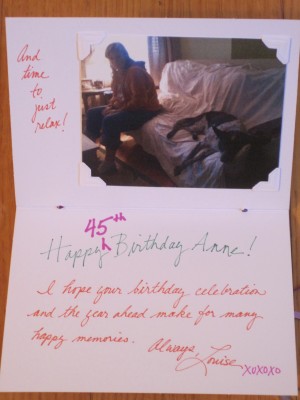 And
time
to
just
relax!
45th
Happy Birthday Anne!
I hope your birthday celebration
and the year ahead make for many
happy memories.
Always
Louise
xoxoxo